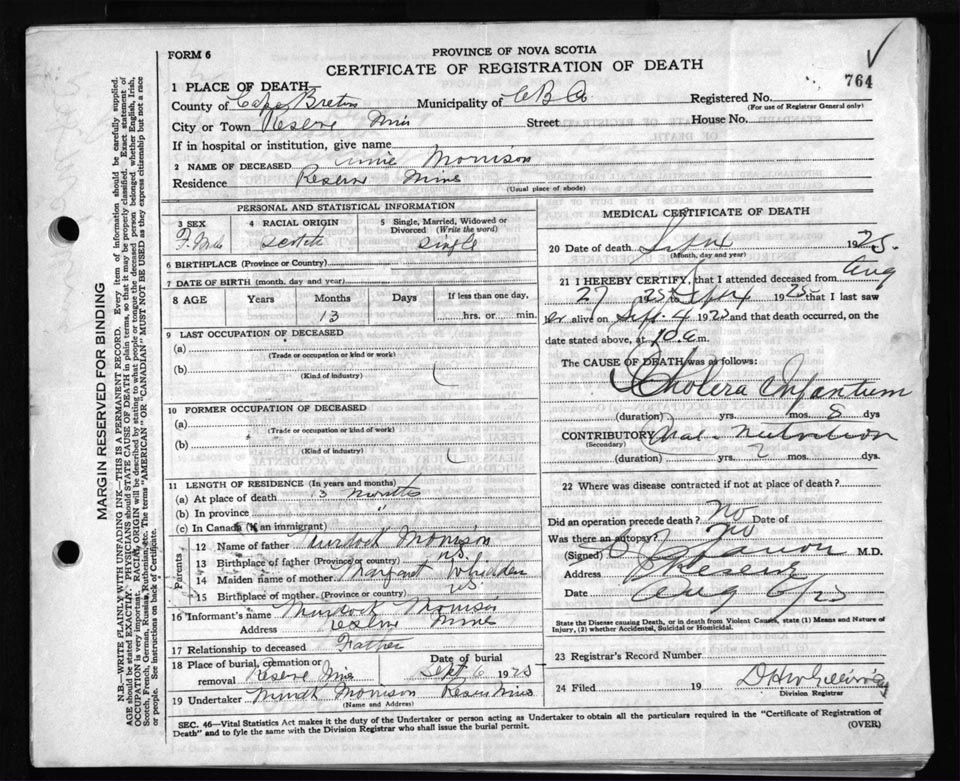 FORM 6
PROVINCE OF NOVA SCOTIA
CERTIFICATE OF REGISTRATION OF DEATH
764
1 PLACE OF DEATH
County of Cape Breton Municipality of C B Registered No.
(For use of Registrar General only)
City or Town Reserve Mines Street House No.
If in hospital or institution, give name
2 NAME OF DECEASED Annie Morrison
Residence Reserve Mines
(Usual place of abode)
PERSONAL AND STATISTICAL INFORMATION
3 SEX 4 RACIAL ORIGIN 5 Single, Married, Widowed or Divorced (Write the word)
Scotch single
6 BIRTHPLACE (Province or Country)
7 DATE OF BIRTH (month, day and year)
8 AGE Years Months Days If less than one day,
13 hrs. or min.
9 LAST OCCUPATION OF DECEASED
(a)
(Trade or occupation or kind or work)
(b)
(Kind of industry)
10 FORMER OCCUPATION OF DECEASED
(a)
(Trade or occupation or kind of work)
(b)
(Kind of industry)
11 LENGTH OF RESIDENCE (In years and months)
(a) At place of death 13 months
(b) In province "
(c) In Canada (if an immigrant)
Parents
12 Name of father Murdock Morrison
13 Birthplace of father (Province or country) N.S.
14 Maiden name of mother Margaret Whidden
15 Birthplace of mother (Province or country) N.S.
16 Informant's name Murdock Morrison
Address Reserve Mines
17 Relationship to deceased Father
18 Place of burial, cremation or removal Reserve Mines Date of burial Sept 6 1925
19 Undertaker Morrison Reserve Mines
(Name and Address)
MEDICAL CERTIFICATE OF DEATH
20 Date of death Sept 1925.
(Month, day and year)
21 I HEREBY CERTIFY, that I attended deceased from Aug
27 25 to Sept 4 1925 that I last saw
er alive on Sept. 4 1925 and that death occurred, on
date stated above, at 10 a.m.
The CAUSE OF DEATH was as follows:
Cholera Infantum
(duration) yrs. mos. 8 dys
CONTRIBUTORY Mal-Nutrition
(Secondary)
(duration) yrs. 2 mos. dys.
22 Where was disease contracted if not at place of death?
Did an operation precede death? No Date of
Was there an autopsy? No
(Signed) M.D.
Address Reserve
Date Aug
State the Disease causing Death, or in death from Violent Causes, state (1) Means and Nature of
Injury, (2) whether Accidental, Suicidal or Homicidal.
23 Registrar's Record Number
24 Filed 19
Division Registrar
SEC. 46—Vital Statistics Act makes it the duty of the Undertaker or person acting as Undertaker to obtain all the particulars required in the "Certificate of Registration of
Death" and to fyle the same with the Division Registrar who shall issue the burial permit. (OVER)
MARGIN RESERVED FOR BINDING
N.B.—WRITE PLAINLY WITH UNFADING INK—THIS IS A PERMANENT RECORD. Every item of information should be carefully supplied.
AGE should be stated EXACTLY. PHYSICIANS should STATE CAUSE OF DEATH in plain terms, so that it may be properly classified. Exact statement of
OCCUPATION is very important. RACIAL ORIGIN will be described by stating to what people or tongue the deceased person belonged whether English, Irish,
Scotch, French, German, Russian, Ruthenian, etc. The terms "AMERICAN" OR "CANADIAN" MUST NOT BE USED as they express citizenship but not a race
or people. See instructions on back of Certificate.